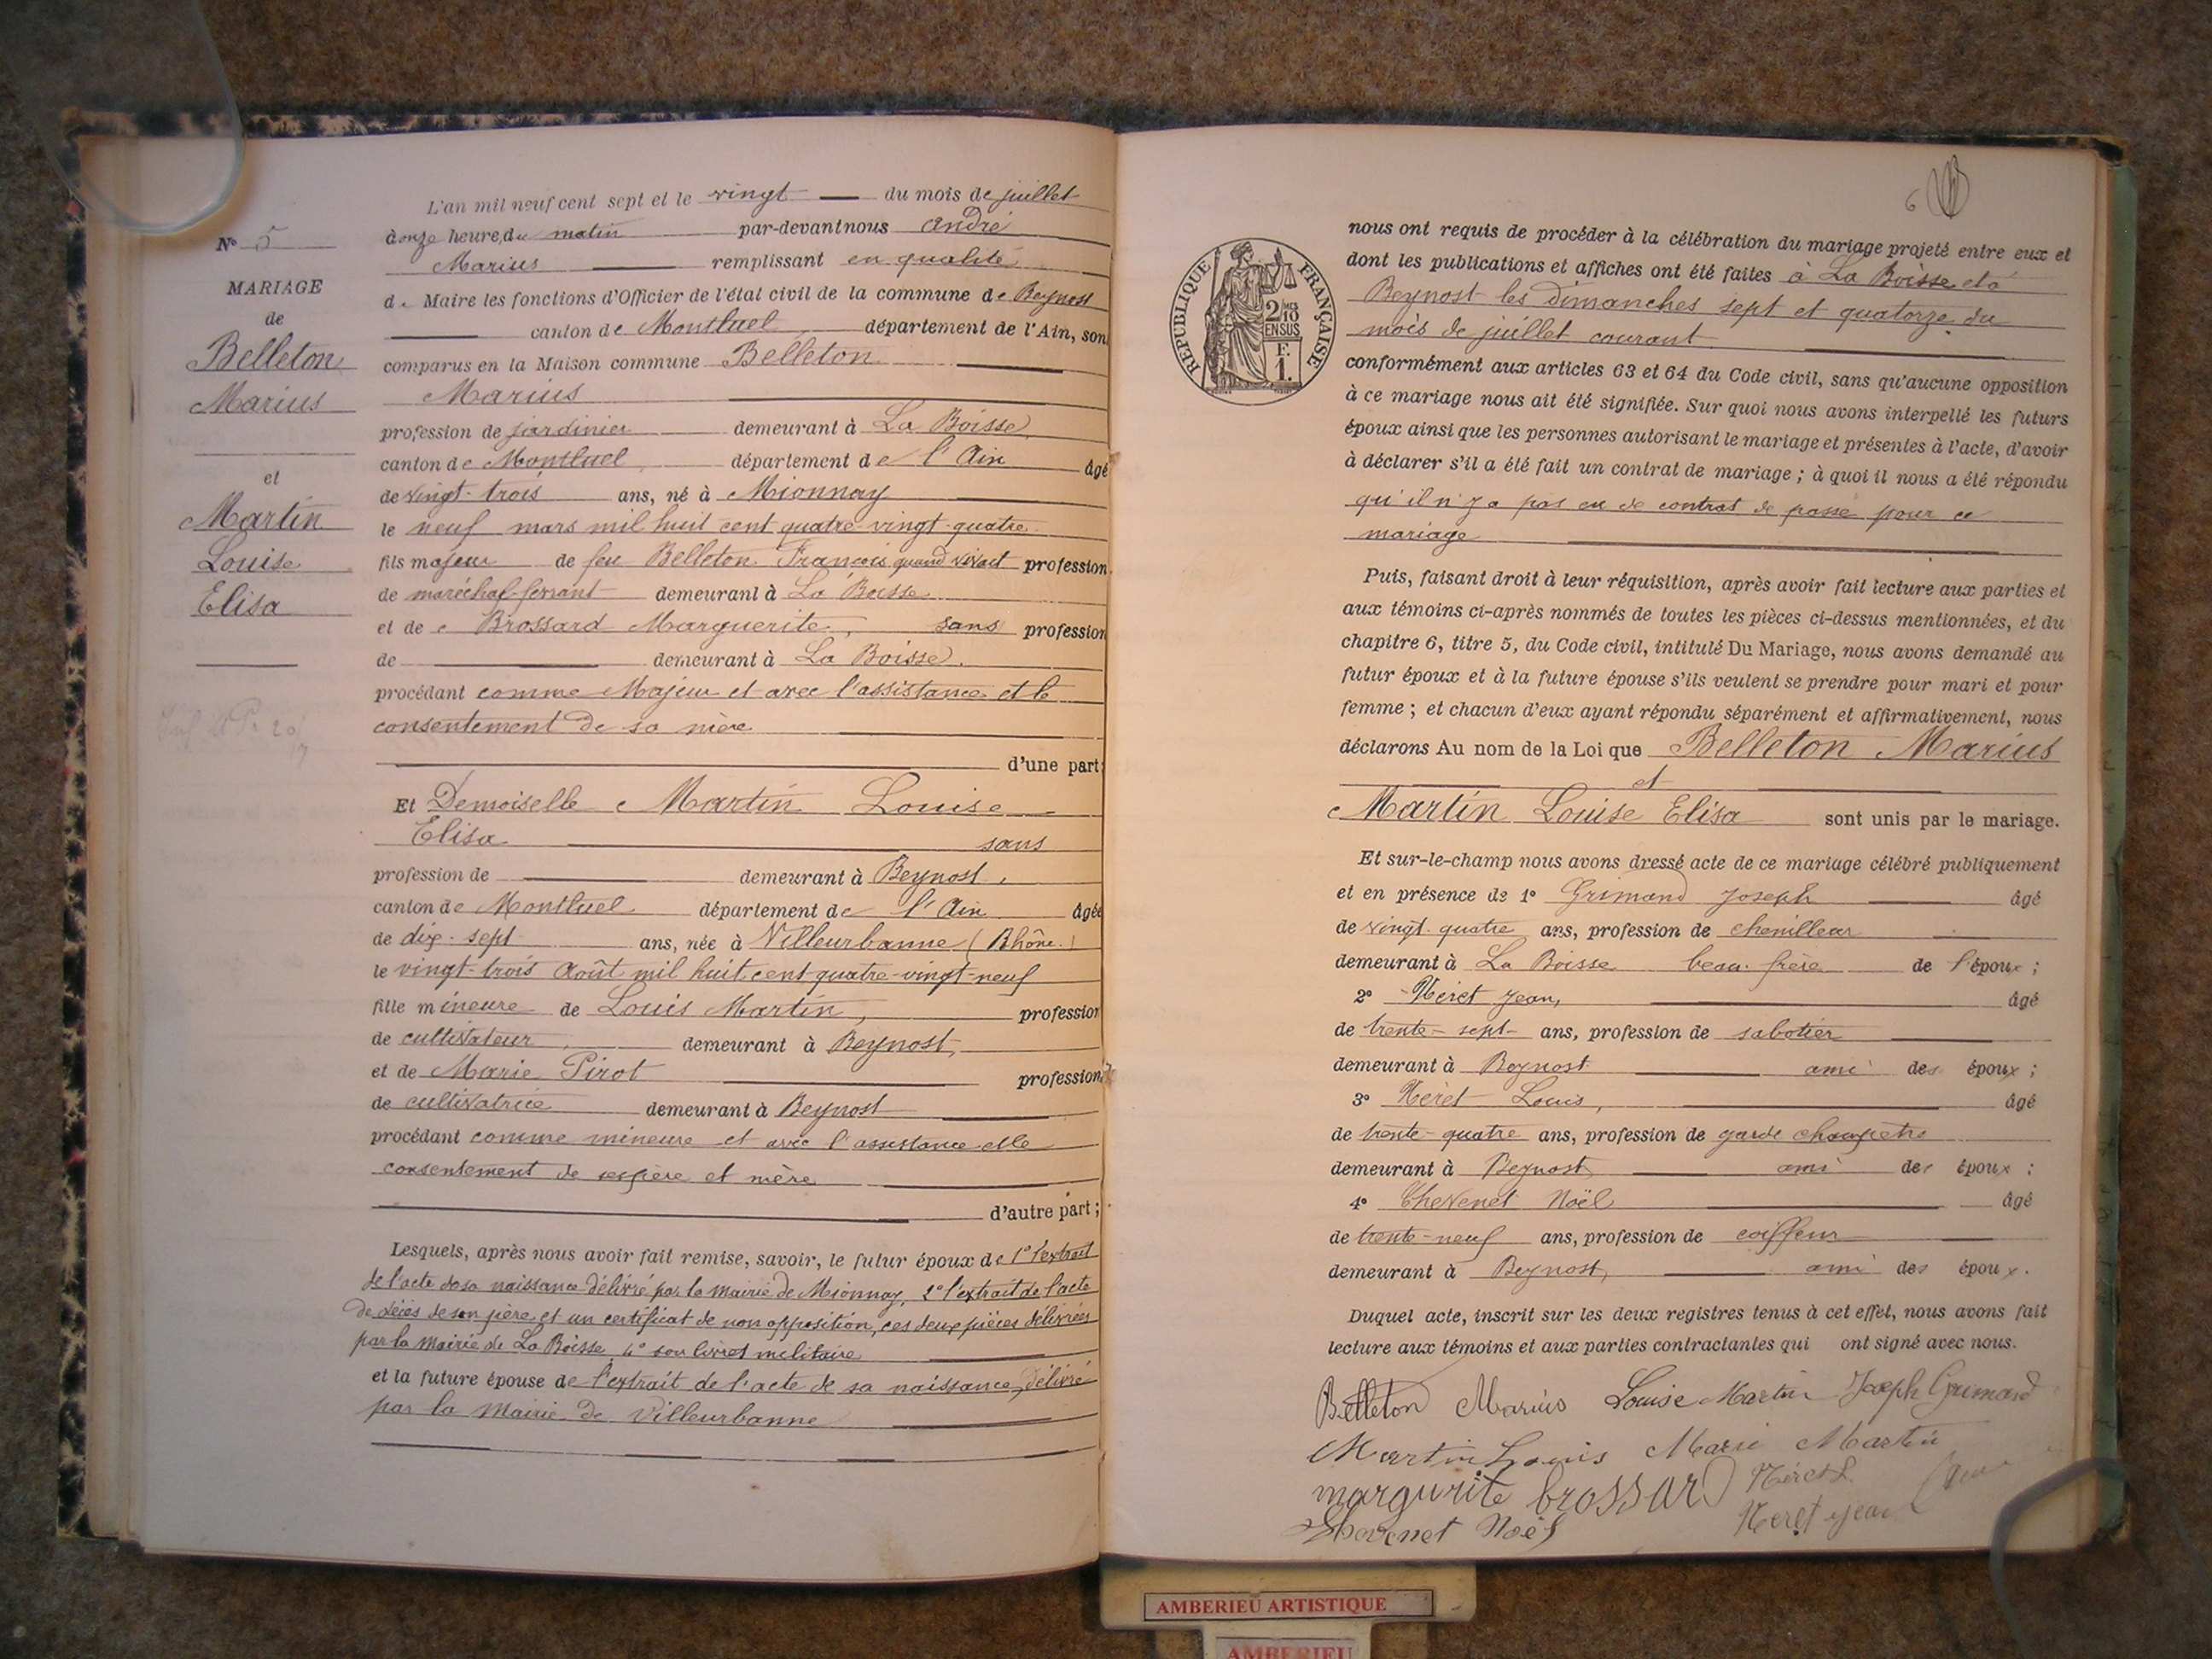 N° 5
MARIAGE
de
Belleton
Marius
et
Martin
Louise
Elisa
L'an mil neuf cent sept et le vingt du mois de juillet
à onze heure, du matin par-devant nous André
Marius remplissant en qualité
de Maire les fonctions d'Officier de l'état civil de la commune de Beynost
canton de Montluel département de l'Ain, son
comparus en la Maison commune Belleton
Marius
profession de jardinier demeurant à La Boisse
canton de Montluel département de l'Ain âgé
de vingt-trois ans, né à Mionnay
le neuf mars mil huit cent quatre-vingt-quatre
fils majeur de feu Belleton François quand vivait profession
de maréchal-ferrant demeurant à La Boisse
et de Brossard Marguerite, sans profession
de demeurant à La Boisse.
procédant comme Majeur et avec l'assistance et le
consentement de sa mère
d'une part;
Et Demoiselle Martin Louise
Elisa sans
profession de demeurant à Beynost,
canton de Montluel département de l'Ain âgée
de dix-sept ans, née à Villeurbanne (Rhône.)
le vingt-trois Août mil huit cent quatre-vingt-neuf
fille mineure de Louis Martin, profession
de cultivateur, demeurant à Beynost,
et de Marie Pirot profession
de cultivatrice demeurant à Beynost
procédant comme mineure et avec l'assistance et le
consentement de ses père et mère
d'autre part;
Lesquels, après nous avoir fait remise, savoir, le futur époux de 1° l'extrait
de l'acte de sa naissance délivré par la mairie de Mionnay, 2° l'extrait de l'acte
de décès de son père et un certificat de non opposition, ces deux pièces délivrées
par la Mairie de La Boisse 4° son livret militaire
et la future épouse de l'extrait de l'acte de sa naissance, délivré
par la Mairie de Villeurbanne
6
RÉPUBLIQUE FRANÇAISE
2/10 EN SUS
F.
1.
nous ont requis de procéder à la célébration du mariage projeté entre eux et
dont les publications et affiches ont été faites à La Boisse et à
Beynost les dimanches sept et quatorze du
mois de juillet courant
conformément aux articles 63 et 64 du Code civil, sans qu'aucune opposition
à ce mariage nous ait été signifiée. Sur quoi nous avons interpellé les futurs
époux ainsi que les personnes autorisant le mariage et présentes à l'acte, d'avoir
à déclarer s'il a été fait un contrat de mariage ; à quoi il nous a été répondu
qu'il n'y a pas eu de contrat de passé pour ce
mariage
Puis, faisant droit à leur réquisition, après avoir fait lecture aux parties et
aux témoins ci-après nommés de toutes les pièces ci-dessus mentionnées, et du
chapitre 6, titre 5, du Code civil, intitulé Du Mariage, nous avons demandé au
futur époux et à la future épouse s'ils veulent se prendre pour mari et pour
femme ; et chacun d'eux ayant répondu séparément et affirmativement, nous
déclarons Au nom de la Loi que Belleton Marius
et
Martin Louise Elisa sont unis par le mariage.
Et sur-le-champ nous avons dressé acte de ce mariage célébré publiquement
et en présence de 1° Grimand Joseph âgé
de vingt-quatre ans, profession de chenilleur
demeurant à La Boisse beau-frère de l'époux ;
2° Néret Jean, âgé
de trente-sept ans, profession de sabotier
demeurant à Beynost ami des époux ;
3° Néret Louis, âgé
de trente-quatre ans, profession de garde champêtre
demeurant à Beynost ami des époux ;
4° Chevenet Noël âgé
de trente-neuf ans, profession de coiffeur
demeurant à Beynost, ami des époux.
Duquel acte, inscrit sur les deux registres tenus à cet effet, nous avons fait
lecture aux témoins et aux parties contractantes qui ont signé avec nous.
Belleton Marius Louise Martin Joseph Grimand
Martin Louis Marie Martin
margurite brossard Néret L.
Chevenet Noël Neret jean
AMBERIEU ARTISTIQUE
AMBERIEU